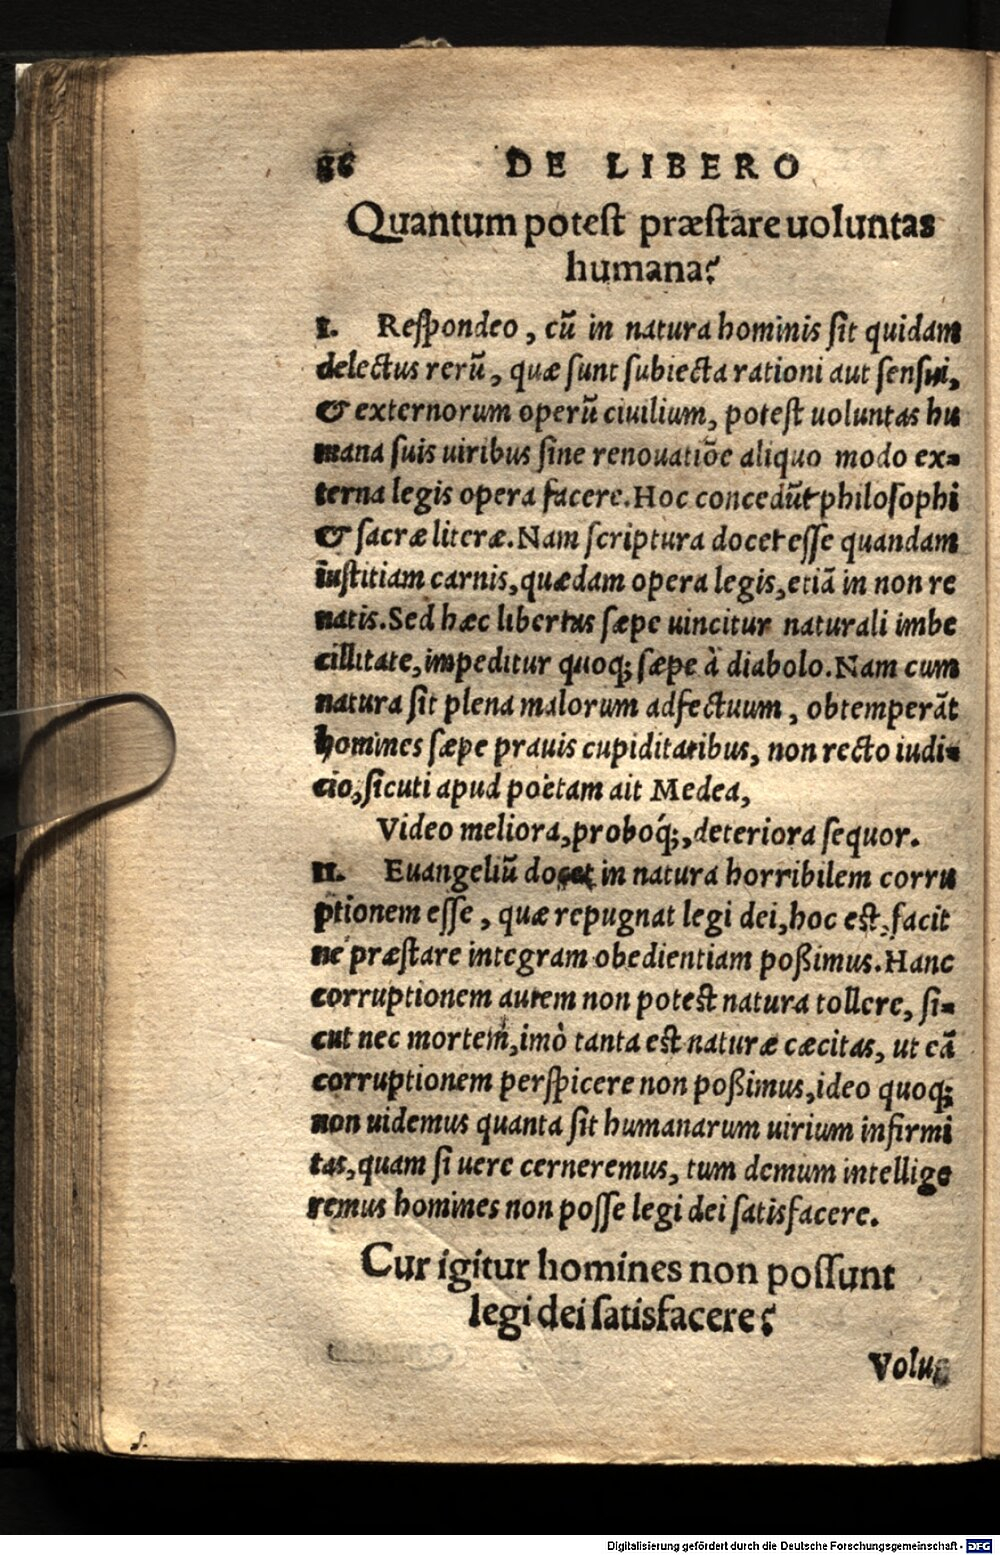 86 DE LIBERO
Quantum potest præstare uoluntas
humana?
I. Respondeo, cū in natura hominis sit quidam
delectus rerū, quæ sunt subiecta rationi aut sensui,
& externorum operū ciuilium, potest uoluntas hu
mana suis uiribus sine renouatiōe aliquo modo ex-
terna legis opera facere. Hoc concedūt philosophi
& sacræ literæ. Nam scriptura docet esse quandam
iustitiam carnis, quædam opera legis, etiā in non re
natis. Sed hæc libertas sæpe uincitur naturali imbe
cillitate, impeditur quoq; sæpe à diabolo. Nam cum
natura sit plena malorum adfectuum, obtemperāt
homines sæpe prauis cupiditatibus, non recto iudi-
cio, sicuti apud poëtam ait Medea,
Video meliora, proboq́;, deteriora sequor.
II. Euangeliū docet in natura horribilem corru
ptionem esse, quæ repugnat legi dei, hoc est, facit
ne præstare integram obedientiam poßimus. Hanc
corruptionem autem non potest natura tollere, si-
cut nec mortem, imò tanta est naturæ cæcitas, ut eā
corruptionem perspicere non poßimus, ideo quoq;
non uidemus quanta sit humanarum uirium infirmi
tas, quam si uere cerneremus, tum demum intellige
remus homines non posse legi dei satisfacere.
Cur igitur homines non possunt
legi dei satisfacere?
Digitalisierung gefördert durch die Deutsche Forschungsgemeinschaft - DFG